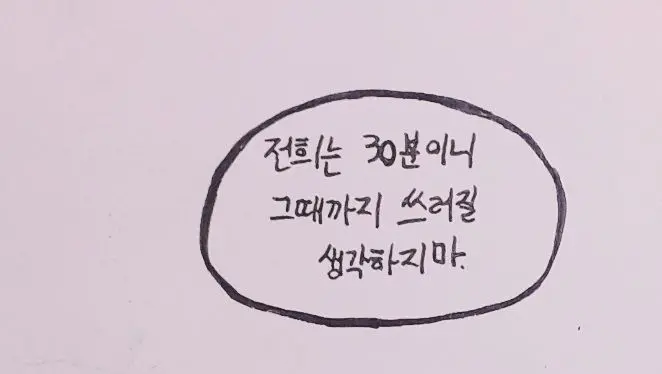 전희는 30분이니
그때까지 쓰러질
생각하지마.